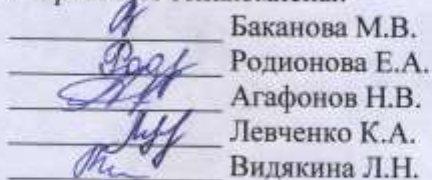 Баканова М.В.
Родионова Е.А.
Агафонов Н.В.
Левченко К.А.
Видякина Л.Н.